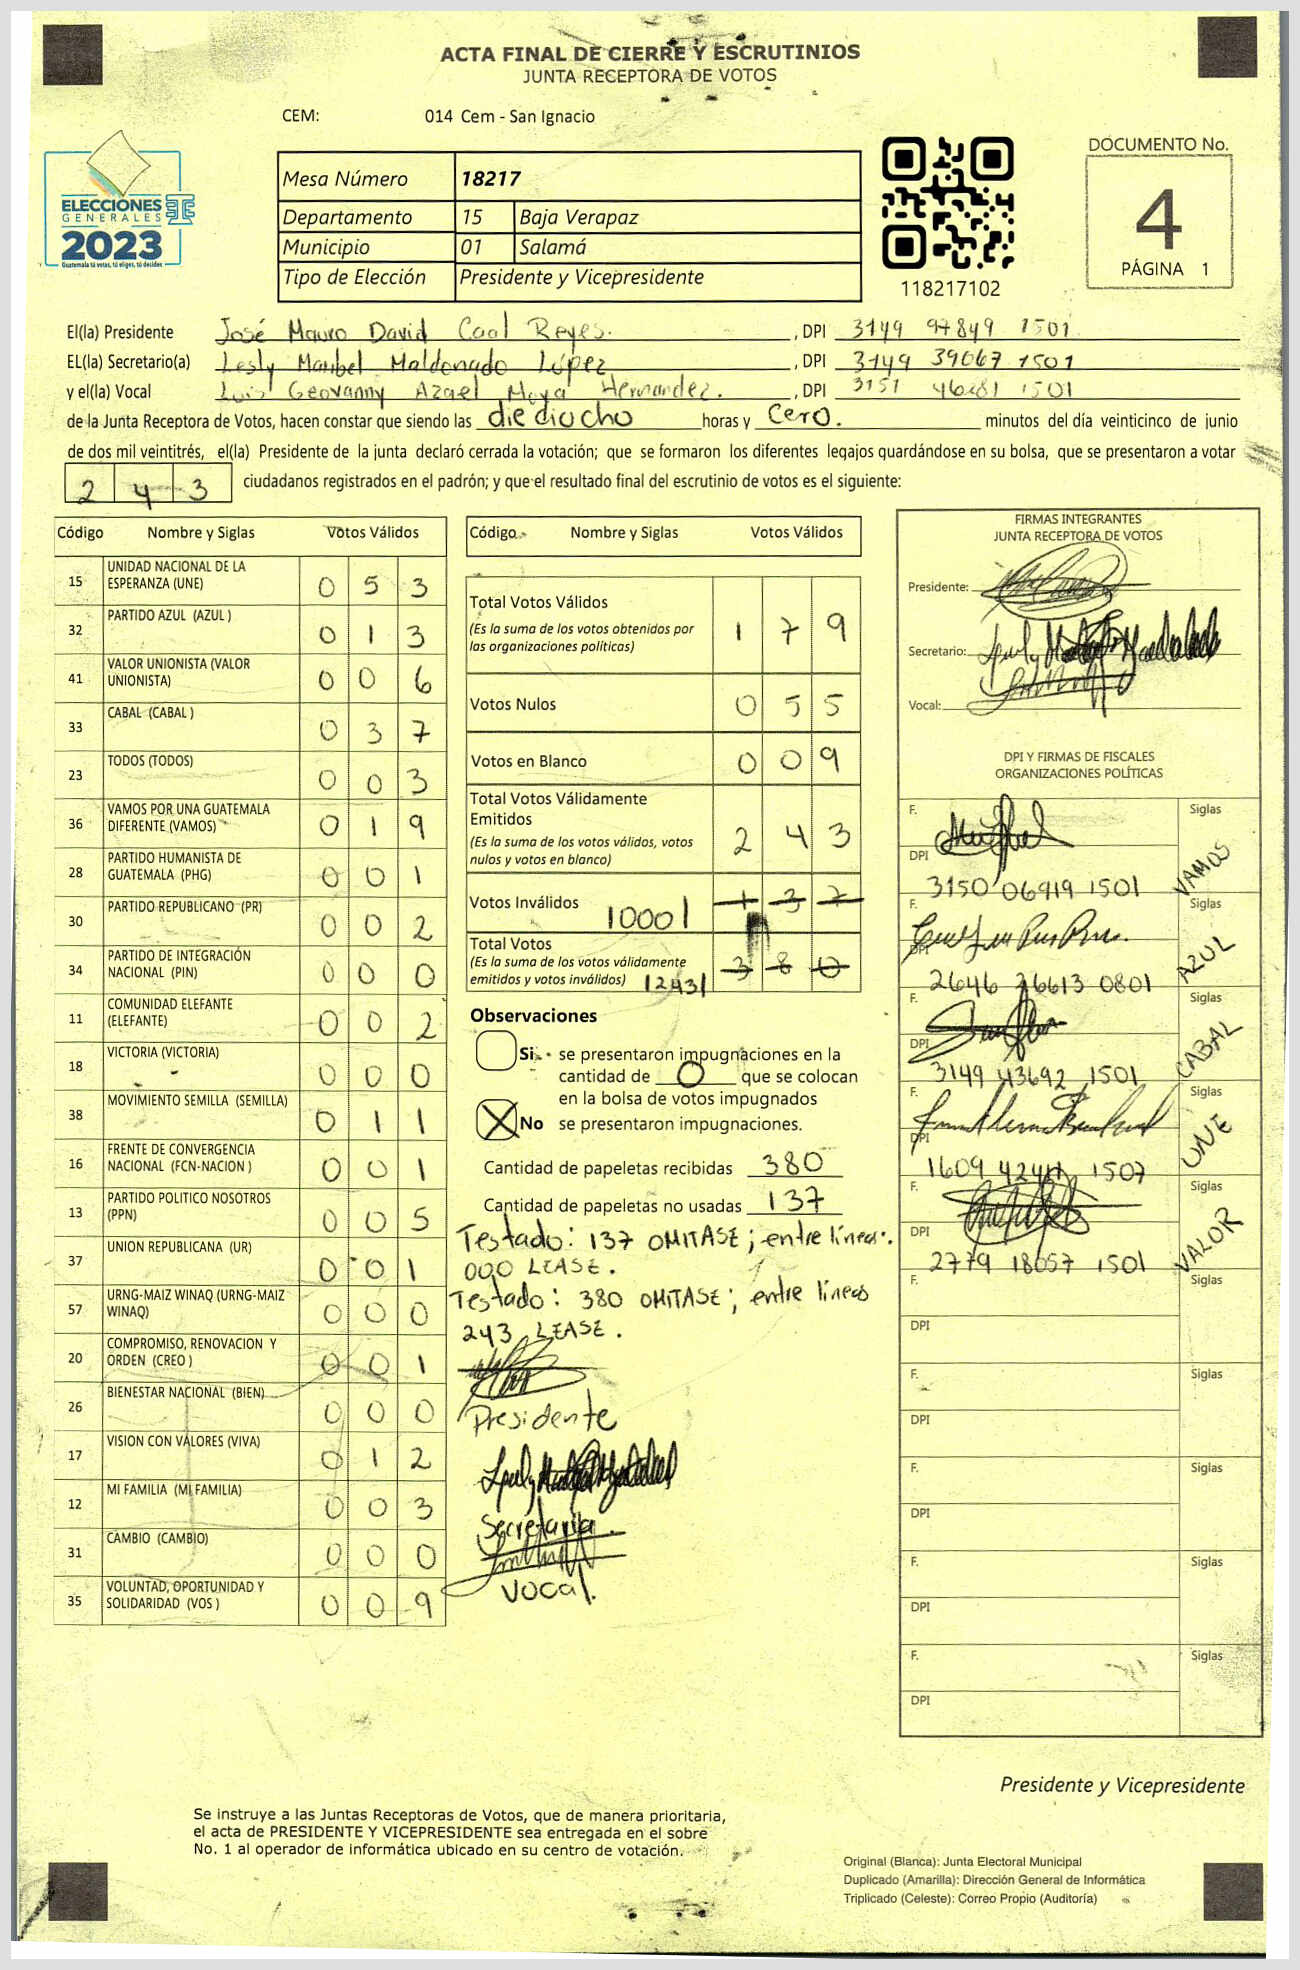 ACTA FINAL DE CIERRE Y ESCRUTINIOS
JUNTA RECEPTORA DE VOTOS
CEM: 014 Cem - San Ignacio
ELECCIONES
GENERALES
2023
Guatemala tú votas, tú eliges, tú decides
Mesa Número 18217
Departamento 15 Baja Verapaz
Municipio 01 Salamá
Tipo de Elección Presidente y Vicepresidente
118217102
DOCUMENTO No.
4
PÁGINA 1
El(la) Presidente José Mauro David Caal Reyes. , DPI 3149 97849 1501
EL(la) Secretario(a) Lesly Maribel Maldonado López , DPI 3149 39067 1501
y el(la) Vocal Luis Geovanny Azael Moya Hernandez. , DPI 3151 46281 1501
de la Junta Receptora de Votos, hacen constar que siendo las dieciocho horas y Cero. minutos del día veinticinco de junio
de dos mil veintitrés, el(la) Presidente de la junta declaró cerrada la votación; que se formaron los diferentes legajos quardándose en su bolsa, que se presentaron a votar
2 4 3 ciudadanos registrados en el padrón; y que el resultado final del escrutinio de votos es el siguiente:
Código Nombre y Siglas Votos Válidos
15 UNIDAD NACIONAL DE LA ESPERANZA (UNE) 0 5 3
32 PARTIDO AZUL (AZUL ) 0 1 3
41 VALOR UNIONISTA (VALOR UNIONISTA) 0 0 6
33 CABAL (CABAL ) 0 3 7
23 TODOS (TODOS) 0 0 3
36 VAMOS POR UNA GUATEMALA DIFERENTE (VAMOS) 0 1 9
28 PARTIDO HUMANISTA DE GUATEMALA (PHG) 0 0 1
30 PARTIDO REPUBLICANO (PR) 0 0 2
34 PARTIDO DE INTEGRACIÓN NACIONAL (PIN) 0 0 0
11 COMUNIDAD ELEFANTE (ELEFANTE) 0 0 2
18 VICTORIA (VICTORIA) 0 0 0
38 MOVIMIENTO SEMILLA (SEMILLA) 0 1 1
16 FRENTE DE CONVERGENCIA NACIONAL (FCN-NACION ) 0 0 1
13 PARTIDO POLITICO NOSOTROS (PPN) 0 0 5
37 UNION REPUBLICANA (UR) 0 0 1
57 URNG-MAIZ WINAQ (URNG-MAIZ WINAQ) 0 0 0
20 COMPROMISO, RENOVACION Y ORDEN (CREO ) 0 0 1
26 BIENESTAR NACIONAL (BIEN) 0 0 0
17 VISION CON VALORES (VIVA) 0 1 2
12 MI FAMILIA (MI FAMILIA) 0 0 3
31 CAMBIO (CAMBIO) 0 0 0
35 VOLUNTAD, OPORTUNIDAD Y SOLIDARIDAD (VOS ) 0 0 9
Código Nombre y Siglas Votos Válidos
Total Votos Válidos 1 7 9
(Es la suma de los votos obtenidos por
las organizaciones políticas)
Votos Nulos 0 5 5
Votos en Blanco 0 0 9
Total Votos Válidamente
Emitidos 2 4 3
(Es la suma de los votos válidos, votos
nulos y votos en blanco)
Votos Inválidos |000| 1 3 7
Total Votos
(Es la suma de los votos válidamente
emitidos y votos inválidos) |243| 3 8 0
Observaciones
Si se presentaron impugnaciones en la
cantidad de 0 que se colocan
en la bolsa de votos impugnados
X No se presentaron impugnaciones.
Cantidad de papeletas recibidas 380
Cantidad de papeletas no usadas 137
Testado: 137 OMITASE; entre líneas:
000 LEASE.
Testado: 380 OMITASE; entre líneas
243 LEASE.
Presidente
Secretaria.
Vocal.
FIRMAS INTEGRANTES
JUNTA RECEPTORA DE VOTOS
Presidente:
Secretario:
Vocal:
DPI Y FIRMAS DE FISCALES
ORGANIZACIONES POLÍTICAS
F. Siglas
DPI 3150 06919 1501 VAMOS
F. Siglas
DPI 2646 26613 0801 AZUL
F. Siglas
DPI 3149 43692 1501 CABAL
F. Siglas
DPI 1609 42411 1507 UNE
F. Siglas
DPI 2779 18057 1501 VALOR
F. Siglas
DPI
F. Siglas
DPI
F. Siglas
DPI
F. Siglas
DPI
F. Siglas
DPI
Presidente y Vicepresidente
Se instruye a las Juntas Receptoras de Votos, que de manera prioritaria,
el acta de PRESIDENTE Y VICEPRESIDENTE sea entregada en el sobre
No. 1 al operador de informática ubicado en su centro de votación.
Original (Blanca): Junta Electoral Municipal
Duplicado (Amarilla): Dirección General de Informática
Triplicado (Celeste): Correo Propio (Auditoría)